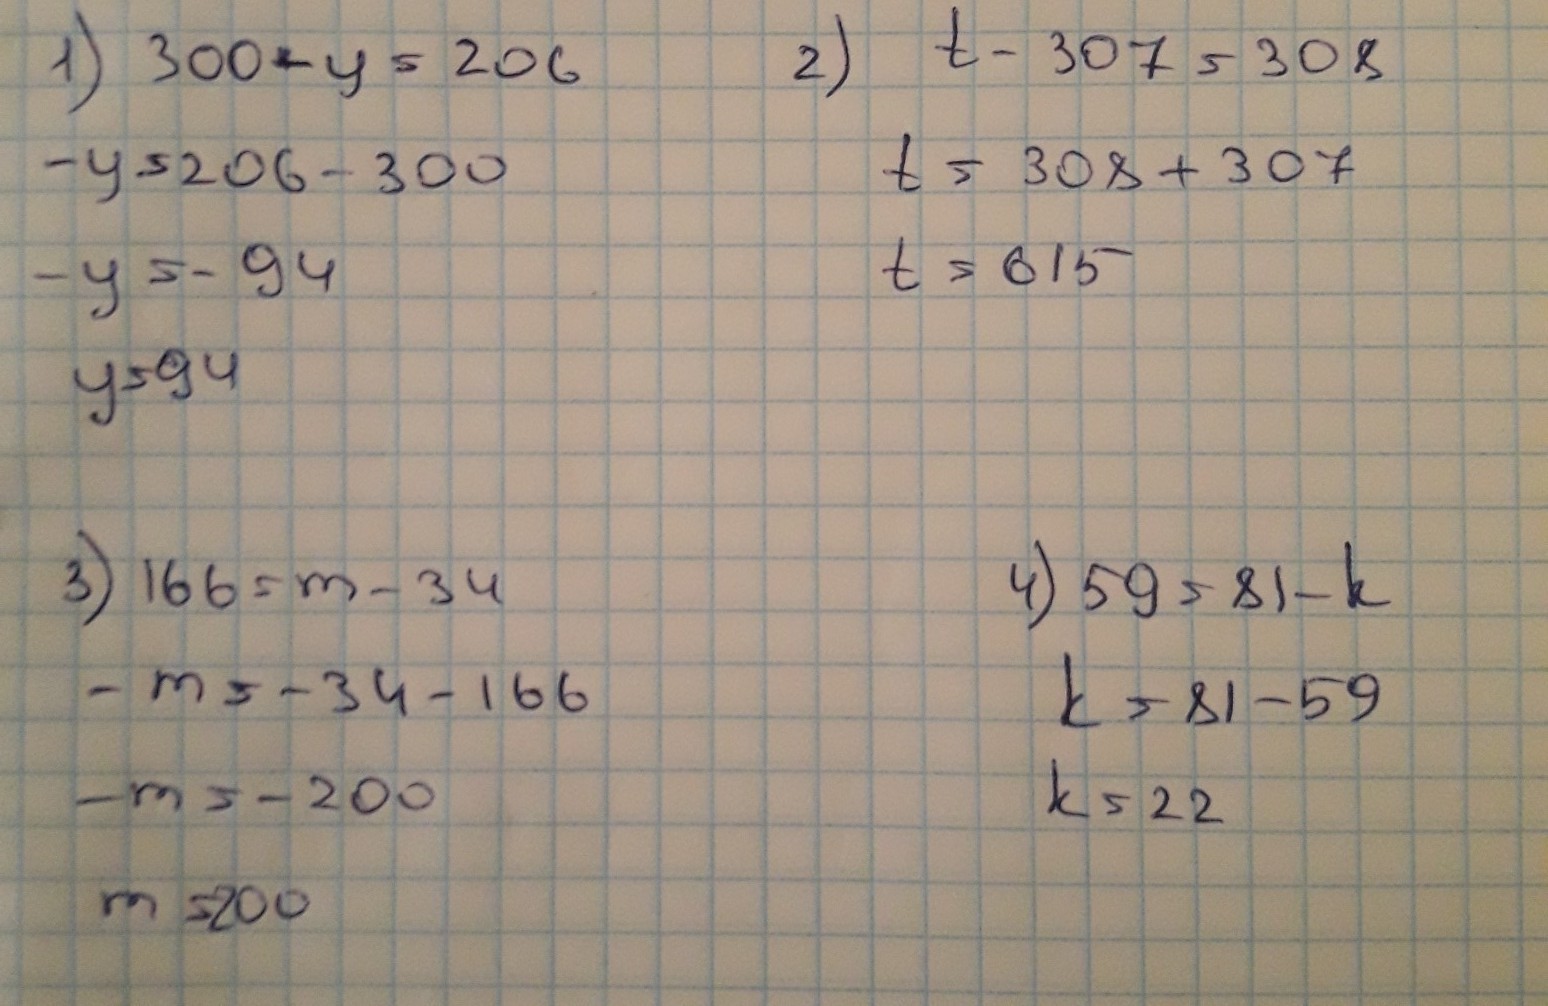 1) 300 - y = 206
-y = 206 - 300
-y = - 94
y = 94
2) t - 307 = 308
t = 308 + 307
t = 615
3) 166 = m - 34
- m = - 34 - 166
- m = - 200
m = 200
4) 59 = 81 - k
k = 81 - 59
k = 22